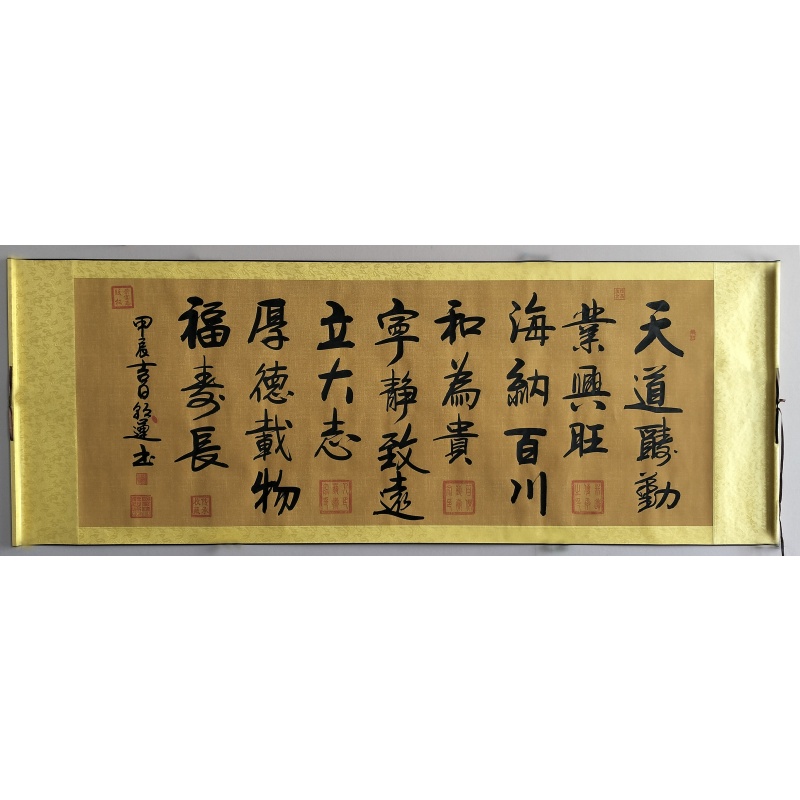 天道酬勤
業興旺
海納百川
和為貴
寧靜致遠
立大志
厚德載物
福壽長
甲辰吉日
運书